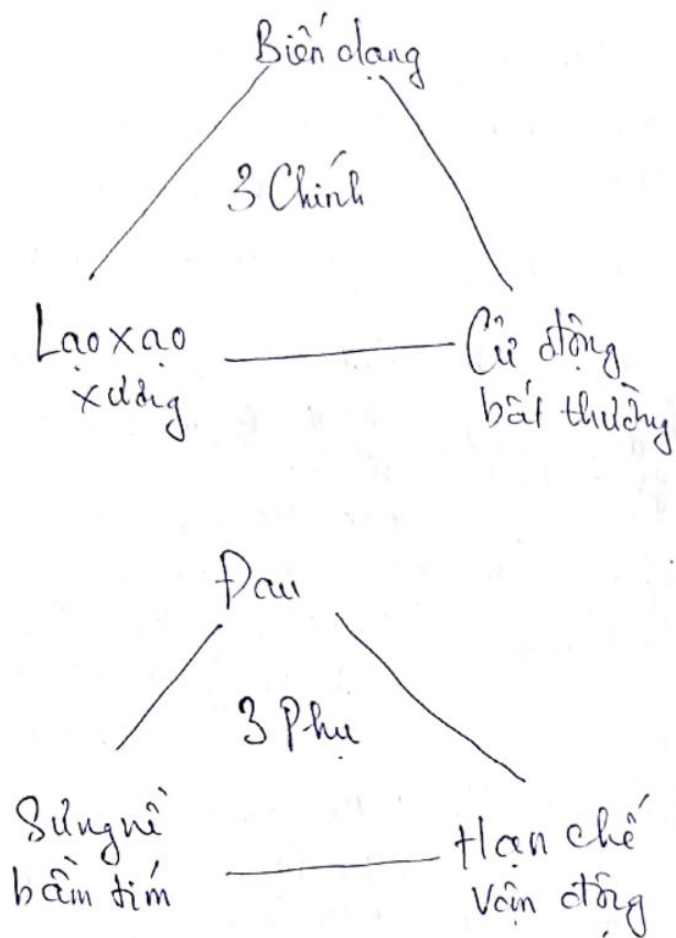 Biến dạng
3 Chính
Lạo xạo
xương
Cử động
bất thường
Đau
3 Phụ
Sưng nề
bầm tím
Hạn chế
Vận động